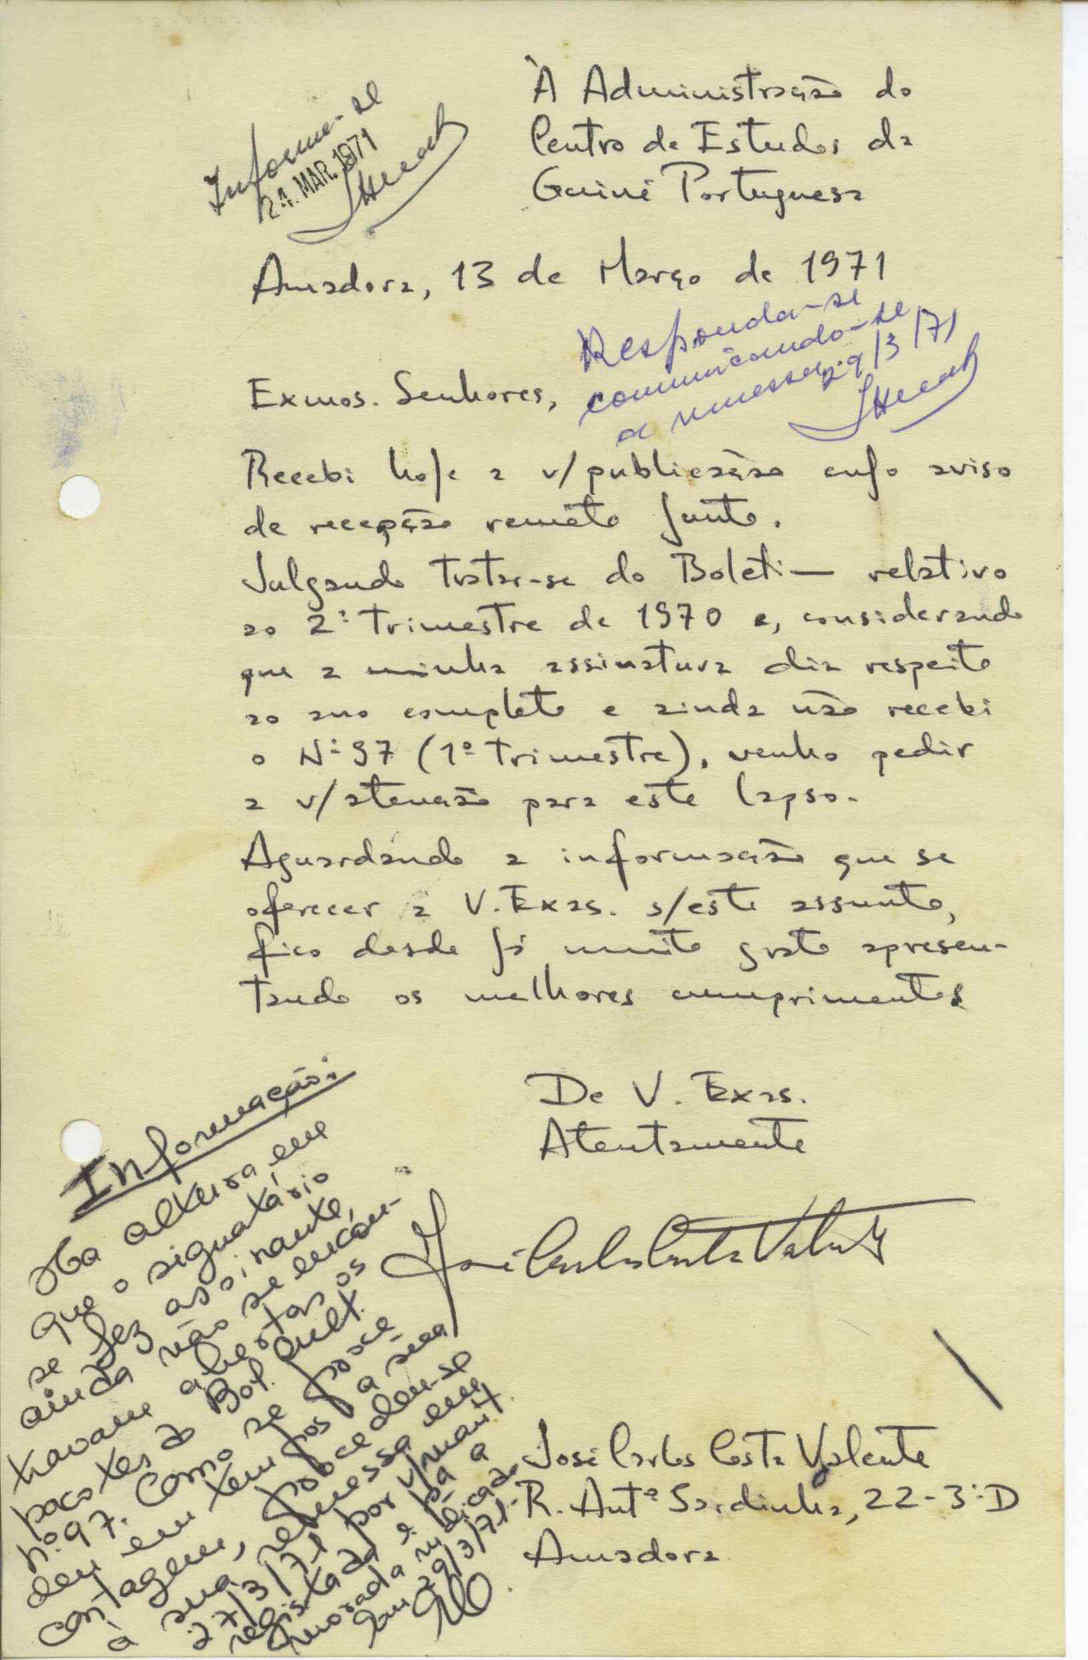 À Administração do
Centro de Estudos da
Guiné Portuguesa
Informe-se
24. MAR. 1971
Amadora, 13 de Março de 1971
Responda-se
comunicando-se
a remessa. 29/3/71
Exmos. Senhores,
Recebi hoje a v/publicação cujo aviso
de recepção remeto junto.
Julgando tratar-se do Boletim relativo
ao 2º trimestre de 1970 e, considerando
que a minha assinatura diz respeito
ao ano completo e ainda não recebi
o Nº 97 (1º trimestre), venho pedir
a v/atenção para este lapso.
Aguardando a informação que se
oferecer a V. Exas. s/este assunto,
fico desde já muito grato apresen-
tando os melhores cumprimentos
De V. Exas.
Atentamente
José Carlos Costa Valente
José Carlos Costa Valente
R. Antº Sardinha, 22-3º D
Amadora
Informação:
Na altura em
que o signatário
se fez assinante,
ainda não se encon-
travam abertos os
pacotes do Bol. Cult.
nº 97. Como se posse
deu em tempos a sua
contagem, procedeu-se
à sua remessa em
27/3/71 por v/marit.
registada e pª a
morada indicada
em 29/3/71.